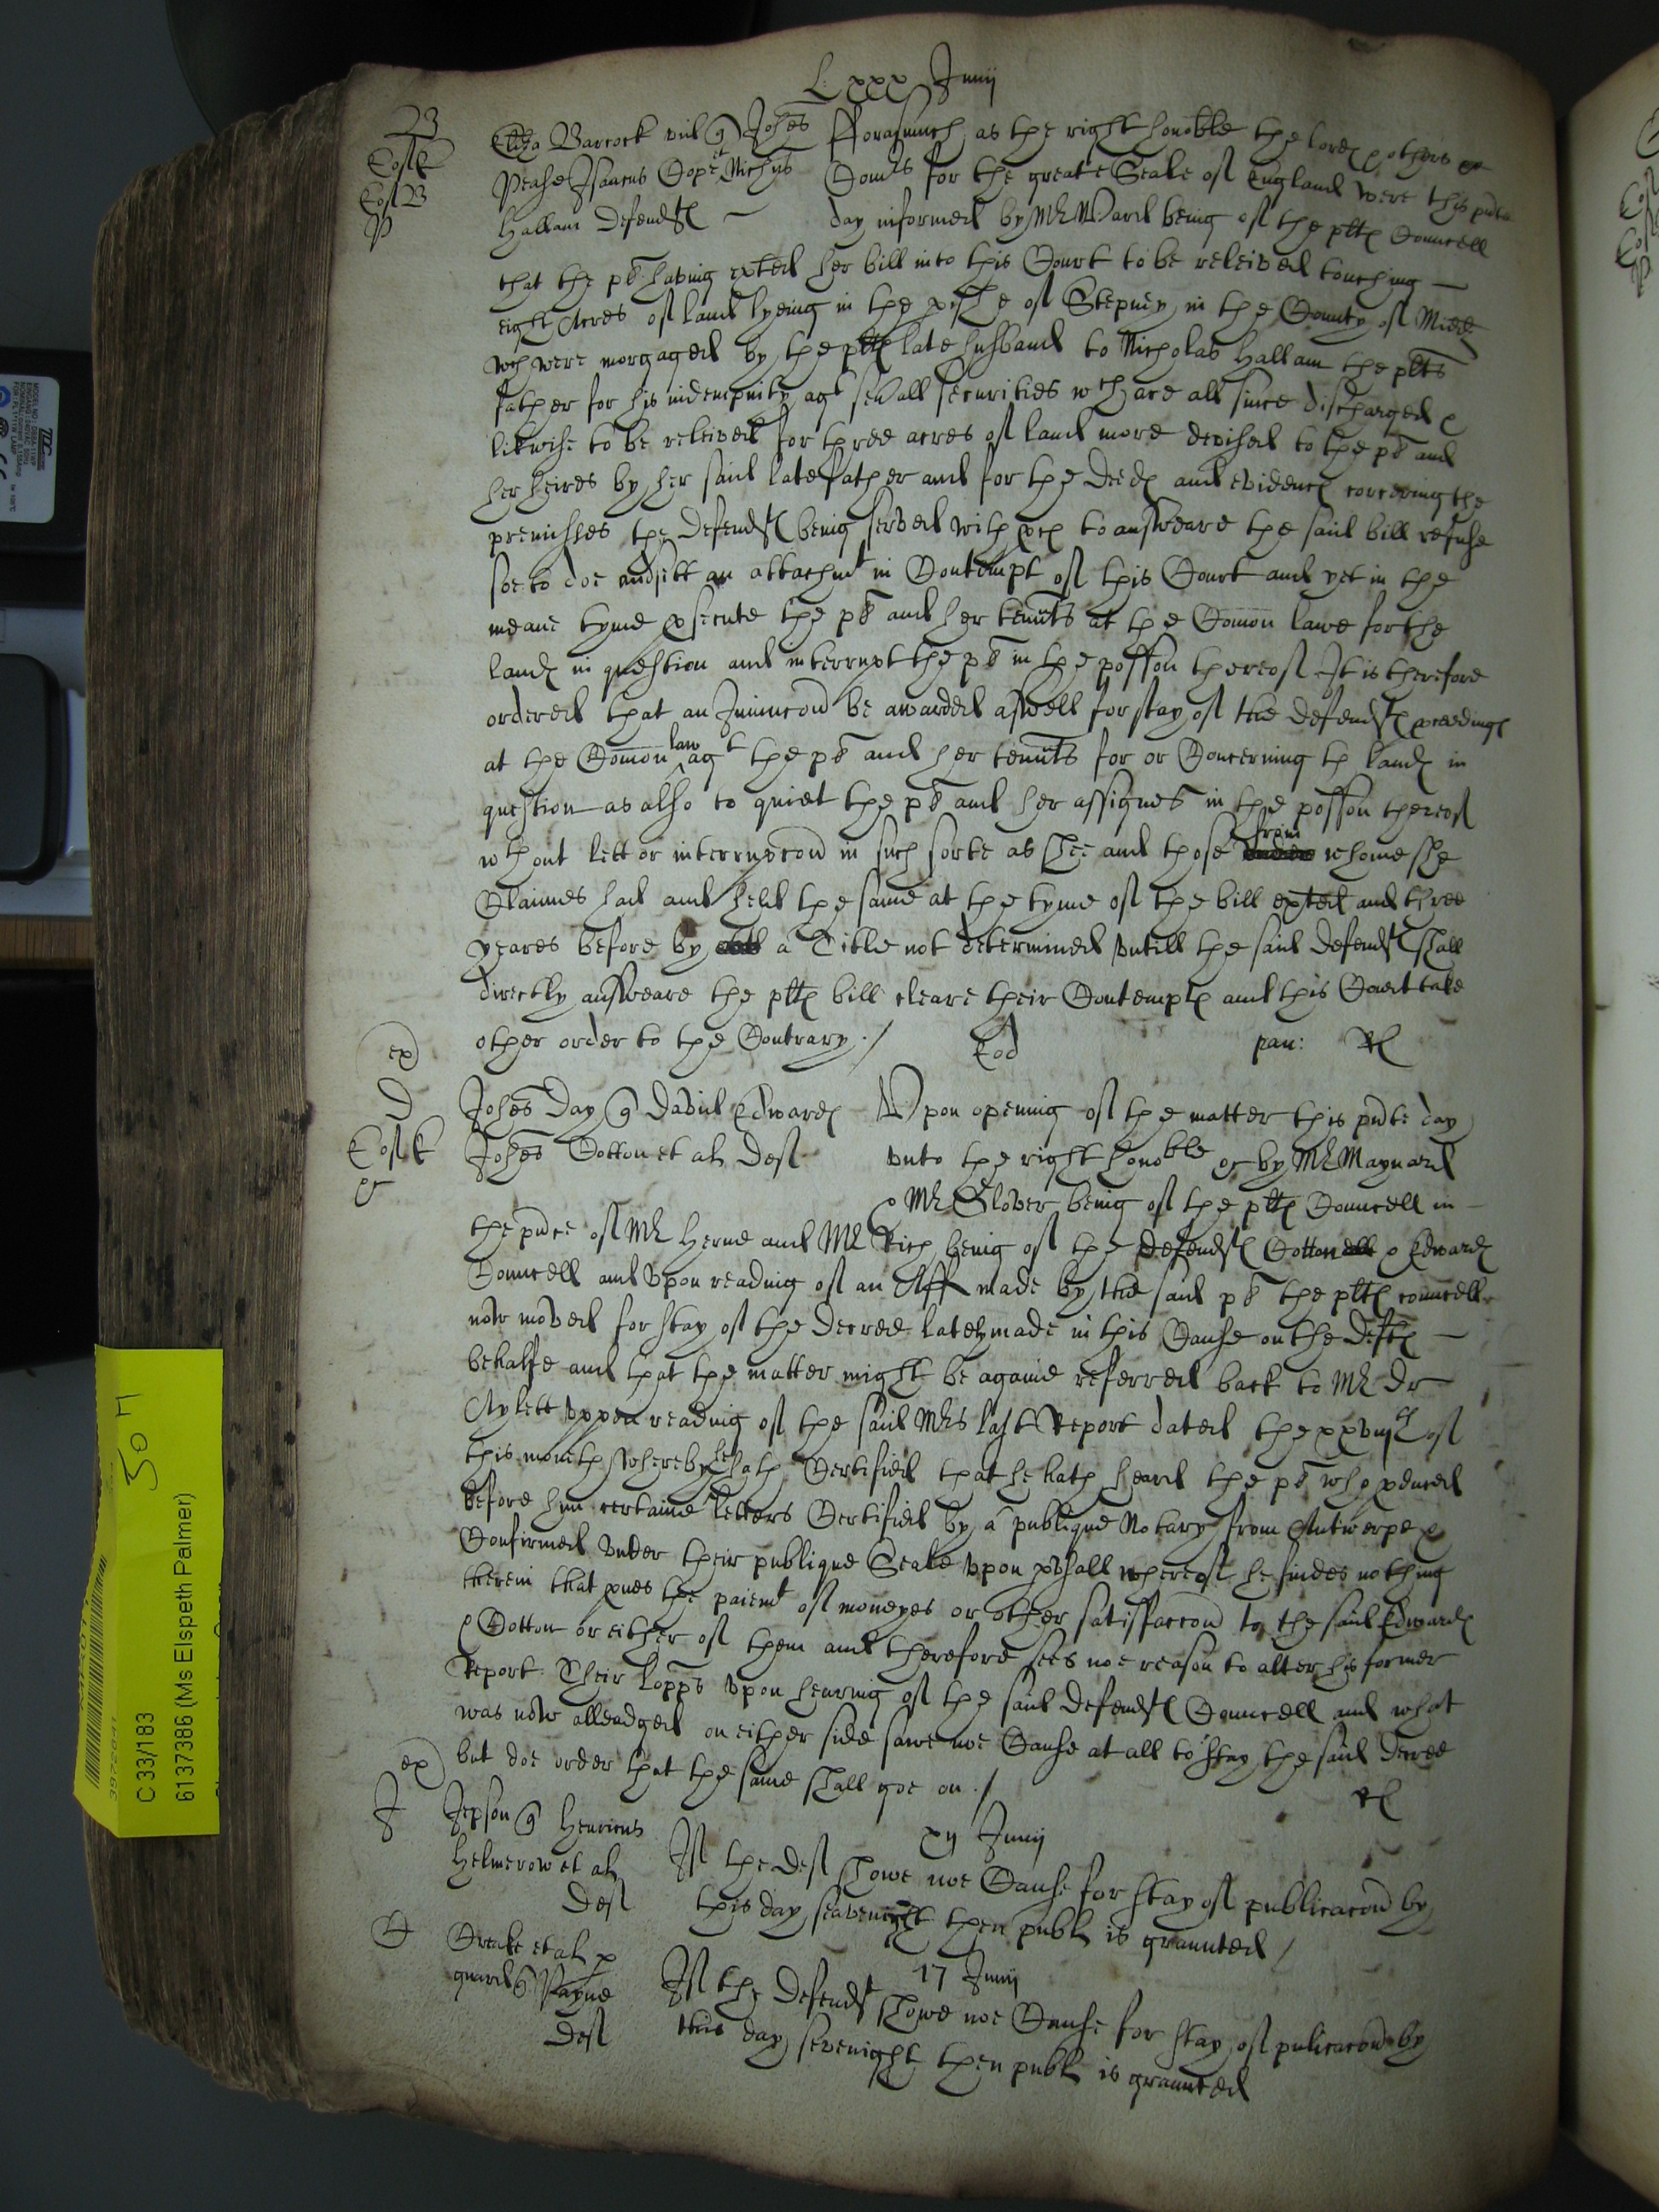 L xxx Junij
B
Cost
Cost B
P
Eliza Barcock vid Johes
Pease Isaacus Cope et Nichus
Hallam Defendtes
fforasmuch as the right honoble the lordes & others
Comrs for the greate Seale of England were this pnte
day informed by Mr Ward being of the plts Councell
that the pl having exted her bill into this Court to be releived touching
eight Acres of land lyeing in the pishe of Stepney in the County of Midd
wch were morgaged by the plts late husband to Nicholas Hallam the plts
father for his indempnity agt seuall securities wch are all since discharged &
likwise to be releived for three acres of land more devised to the pl and
her heires by her said late father and for the Deeds and evidences concerning the
premisses the Defendts being served with pces to answeare the said bill refuse
soe to doe and sitt an attachmt in Contempt of this Court and yet in the
meane tyme psecute the pl and her tennts at the Comon lawe for the
lands in question and interrupt the pl in the possion thereof It is therefore
ordered that an Iniuncion be awarded aswell for stay of the defendts pceedings
at the Comon law agt the pl and her tennts for or Concerning th lands in
question as also to quiet the pl and her assignes in the possion thereof
wthout lett or interrupcion in such sorte as shee and those from whome she
Claimes had and held the same at the tyme of the bill exted and three
yeares before by a Title not determined vntill the said defendts shall
directly answeare the plts bill cleare their Contempts and this Court take
other order to the Contrary ./
Eod
pau: Rl
ex
D
Cost
Johes Day David Edwards
Johes Cotton et al Def
Vpon opening of the matter this pnte day
vnto the right honoble &c by Mr Maynard
& Mr Glover being of the plts Councell in
the pnce of Mr Herne and Mr Rich being of the Defendts Cotton & Edwards
Councell and vpon reading of an Aff made by the said pl the plts councell
now moved for stay of the decree lately made in this Cause on the Defts
behalfe and that the matter might be againe referred back to Mr Dr
Aylett vppon reading of the said Mrs last Report dated the xxviijth of
this moneth whereby he hath Certified that he hath heard the pl who pduced
before him certaine letters Certified by a publique Notary from Antwerpe &
Confirmed vnder their publique Seale vpon pvsall whereof he findes nothing
therein that pves the paiemt of moneyes or other satisfaccion to the said Edwards
& Cotton or either of them and therefore sees noe reason to alter his former
Report. Their lopps vpon hearing of the said defendts Councell and what
was now alleadged on either side sawe noe Cause at all to stay the said decree
but doe order that the same shall goe on ./
Rl
ex
J
Jepson Henricus
Helmerow et al
Def
xij Junij
If the def showe noe Cause for stay of publicacion by
this day seavenight then publ is graunted /
Drake et al
Payne
Def
17 Junij
If the defendt showe noe Cause for stay of publicacion by
this day sevenight then publ is graunted
507
C 33/183
6137386 (Ms Elspeth Palmer)